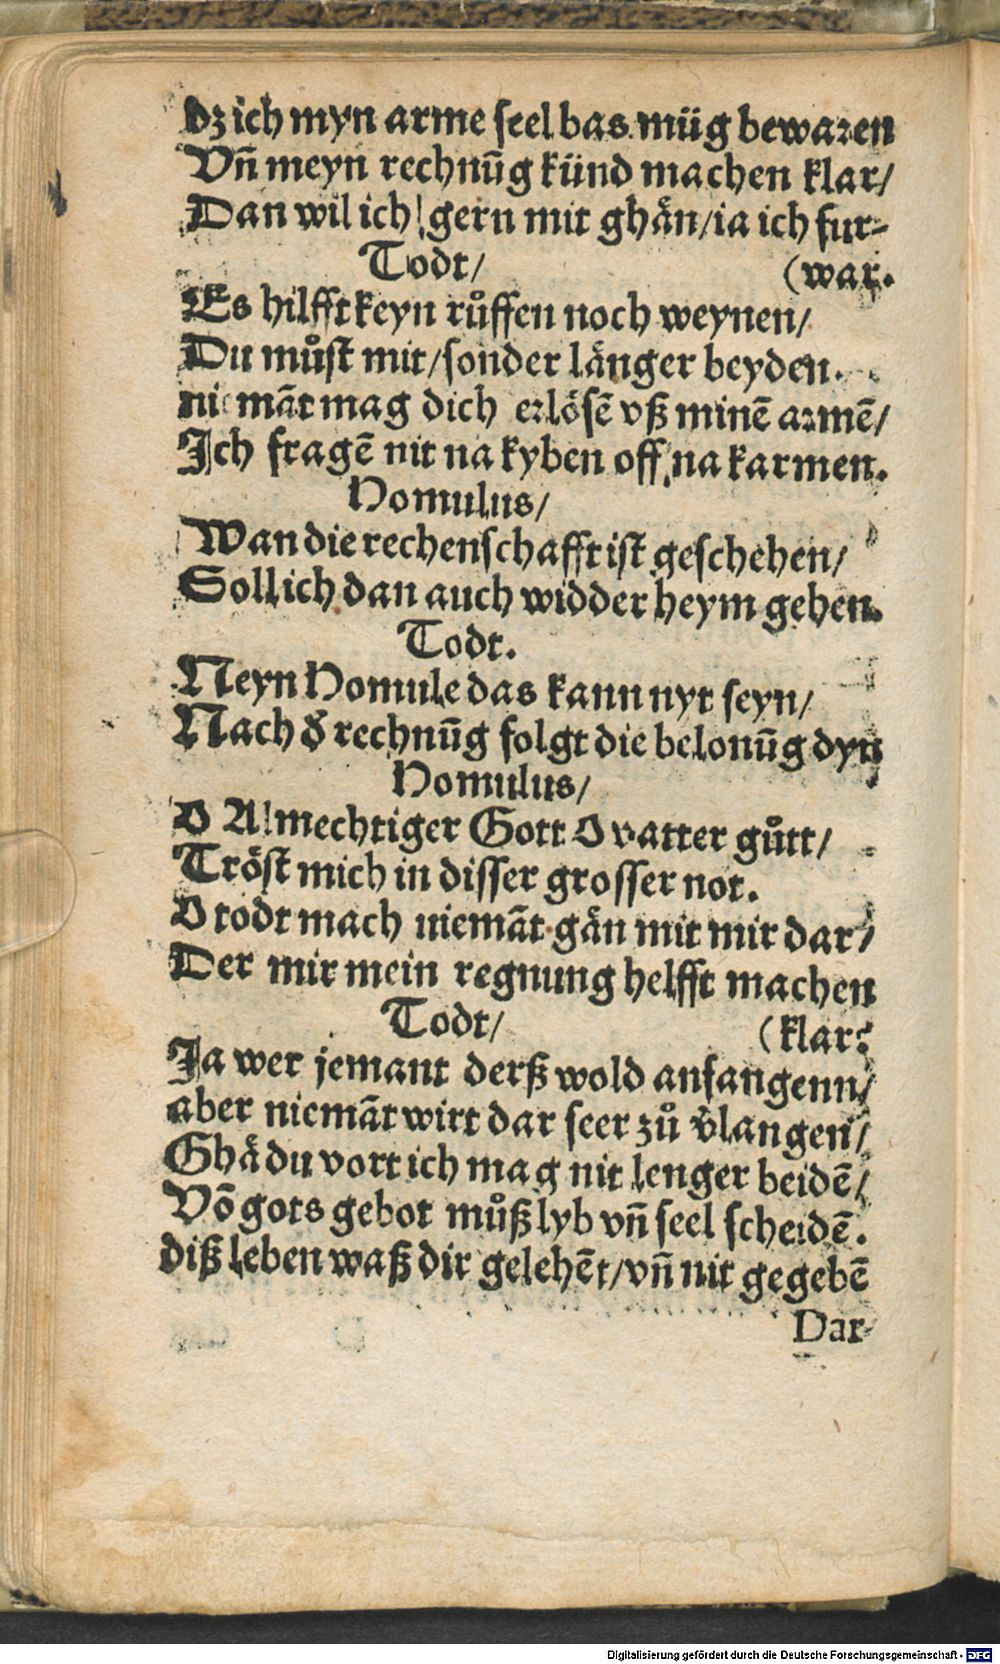 dz ich myn arme seel bas müg bewaren
Vñ meyn rechnūg künd machen klar/
Dan wil ich gern mit ghän/ia ich fur-
Todt/ (war.
Es hilfft keyn růffen noch weynen/
Du můst mit/sonder länger beyden.
niemāt mag dich erlösē vß minē armē/
Ich fragē nit na kyben off na karmen.
Homulus/
Wan die rechenschafft ist geschehen/
Soll ich dan auch widder heym gehen.
Todt.
Neyn Homule das kann nyt seyn/
Nach d̕ rechnūg folgt die belonūg dyn
Homulus/
O Almechtiger Gott O vatter gůtt/
Tröst mich in disser grosser not.
O todt mach niemāt gän mit mir dar/
Der mir mein regnung helfft machen
Todt/ (klar?
Ja wer jemant derß wold anfangenn/
aber niemāt wirt dar seer zů v̕langen/
Ghä du vort ich mag nit lenger beidē/
Vō gots gebot můß lyb vñ seel scheidē.
diß leben waß dir gelehēt/vñ nit gegebē
Dar-
Digitalisierung gefördert durch die Deutsche Forschungsgemeinschaft - DFG